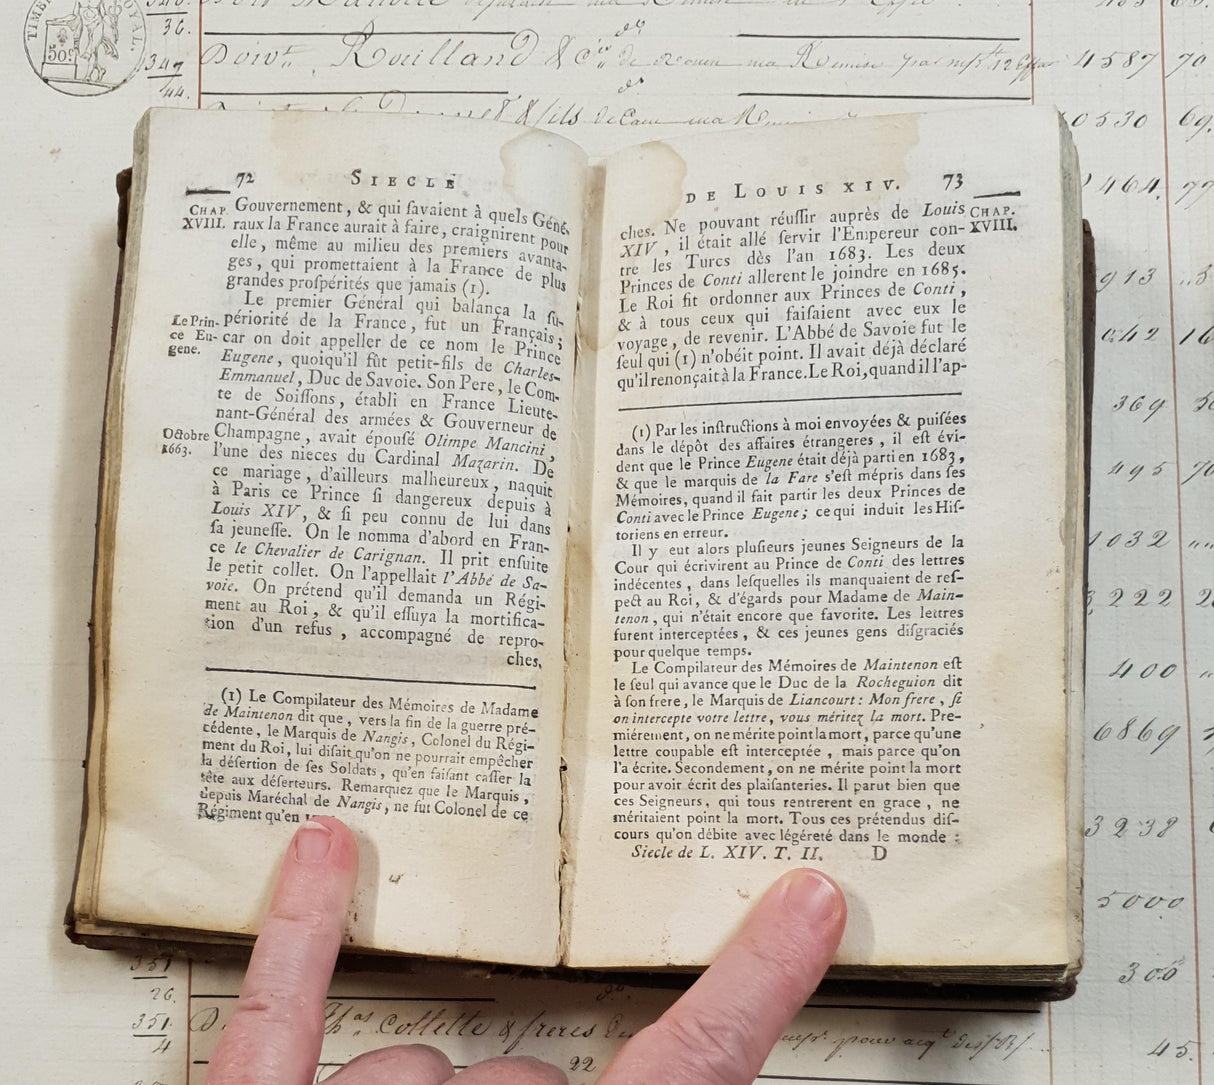 TIMBRE ROYAL.
50c
36.
347
44.
Doivt. Rouilland & Cie de Rouen ma Remise 4587 70
& fils de Caen ma 0530 69.
464. 77
913
042 16
369
495 70
1032 „„
3222
400
6869
3238
5000
300
45.
72 SIECLE
CHAP. XVIII.
Gouvernement, & qui ſavaient à quels Géné-
raux la France aurait à faire, craignirent pour
elle, même au milieu des premiers avanta-
ges, qui promettaient à la France de plus
grandes proſpérités que jamais (1).
Le premier Général qui balança la ſu-
Le Prin-
ce Eu-
gene.
périorité de la France, fut un Français;
car on doit appeller de ce nom le Prince
Eugene, quoiqu'il fût petit-fils de Charles-
Emmanuel, Duc de Savoie. Son Pere, le Com-
te de Soiſſons, établi en France Lieute-
nant-Général des armées & Gouverneur de
Octobre
1663.
Champagne, avait épouſé Olimpe Mancini,
l'une des nieces du Cardinal Mazarin. De
ce mariage, d'ailleurs malheureux, naquit
à Paris ce Prince ſi dangereux depuis à
Louis XIV, & ſi peu connu de lui dans
ſa jeuneſſe. On le nomma d'abord en Fran-
ce le Chevalier de Carignan. Il prit enſuite
le petit collet. On l'appellait l'Abbé de Sa-
voie. On prétend qu'il demanda un Régi-
ment au Roi, & qu'il eſſuya la mortifica-
tion d'un refus, accompagné de repro-
ches.
(1) Le Compilateur des Mémoires de Madame
de Maintenon dit que, vers la fin de la guerre pré-
cédente, le Marquis de Nangis, Colonel du Régi-
ment du Roi, lui diſait qu'on ne pourrait empêcher
la déſertion de ſes Soldats, qu'en faiſant caſſer la
tête aux déſerteurs. Remarquez que le Marquis,
depuis Maréchal de Nangis, ne fut Colonel de ce
Régiment qu'en
DE LOUIS XIV. 73
CHAP.
XVIII.
ches. Ne pouvant réuſſir auprès de Louis
XIV, il était allé ſervir l'Empereur con-
tre les Turcs dès l'an 1683. Les deux
Princes de Conti allerent le joindre en 1685.
Le Roi fit ordonner aux Princes de Conti,
& à tous ceux qui faiſaient avec eux le
voyage, de revenir. L'Abbé de Savoie fut le
ſeul qui (1) n'obéit point. Il avait déjà déclaré
qu'il renonçait à la France. Le Roi, quand il l'ap-
(1) Par les inſtructions à moi envoyées & puiſées
dans le dépôt des affaires étrangeres, il eſt évi-
dent que le Prince Eugene était déjà parti en 1683,
& que le marquis de la Fare s'eſt mépris dans ſes
Mémoires, quand il fait partir les deux Princes de
Conti avec le Prince Eugene; ce qui induit les Hiſ-
toriens en erreur.
Il y eut alors pluſieurs jeunes Seigneurs de la
Cour qui écrivirent au Prince de Conti des lettres
indécentes, dans leſquelles ils manquaient de reſ-
pect au Roi, & d'égards pour Madame de Main-
tenon, qui n'était encore que favorite. Les lettres
furent interceptées, & ces jeunes gens diſgraciés
pour quelque temps.
Le Compilateur des Mémoires de Maintenon eſt
le ſeul qui avance que le Duc de la Rocheguion dit
à ſon frere, le Marquis de Liancourt: Mon frere, ſi
on intercepte votre lettre, vous méritez la mort. Pre-
miérement, on ne mérite point la mort, parce qu'une
lettre coupable eſt interceptée, mais parce qu'on
l'a écrite. Secondement, on ne mérite point la mort
pour avoir écrit des plaiſanteries. Il parut bien que
ces Seigneurs, qui tous rentrerent en grace, ne
méritaient point la mort. Tous ces prétendus diſ-
cours qu'on débite avec légéreté dans le monde:
Siecle de L. XIV. T. II. D
351
26.
351.
4
Collette & freres
22